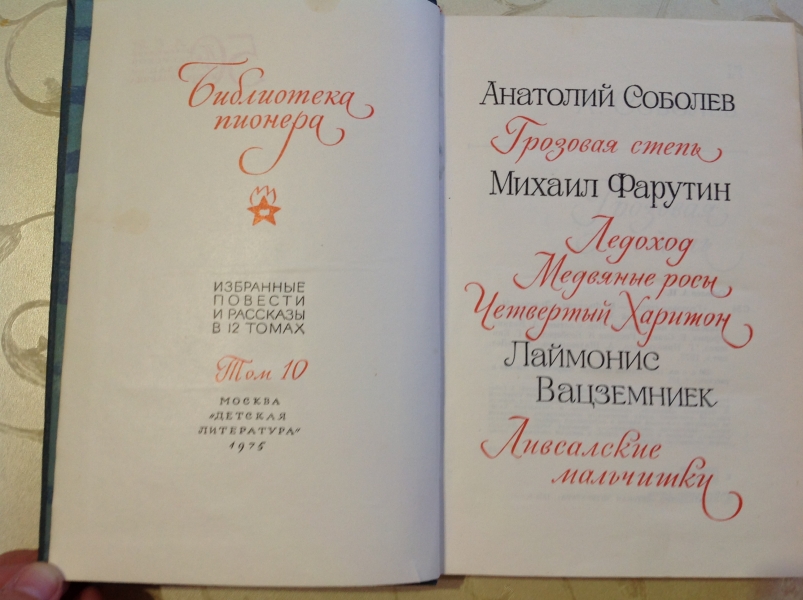 Библиотека
пионера
ИЗБРАННЫЕ
ПОВЕСТИ
И РАССКАЗЫ
В 12 ТОМАХ
Том 10
МОСКВА
«ДЕТСКАЯ
ЛИТЕРАТУРА»
1975
Анатолий Соболев
Грозовая степь
Михаил Фарутин
Ледоход
Медвяные росы
Четвертый Харитон
Лаймонис
Вацземниек
Ливсалские
мальчишки